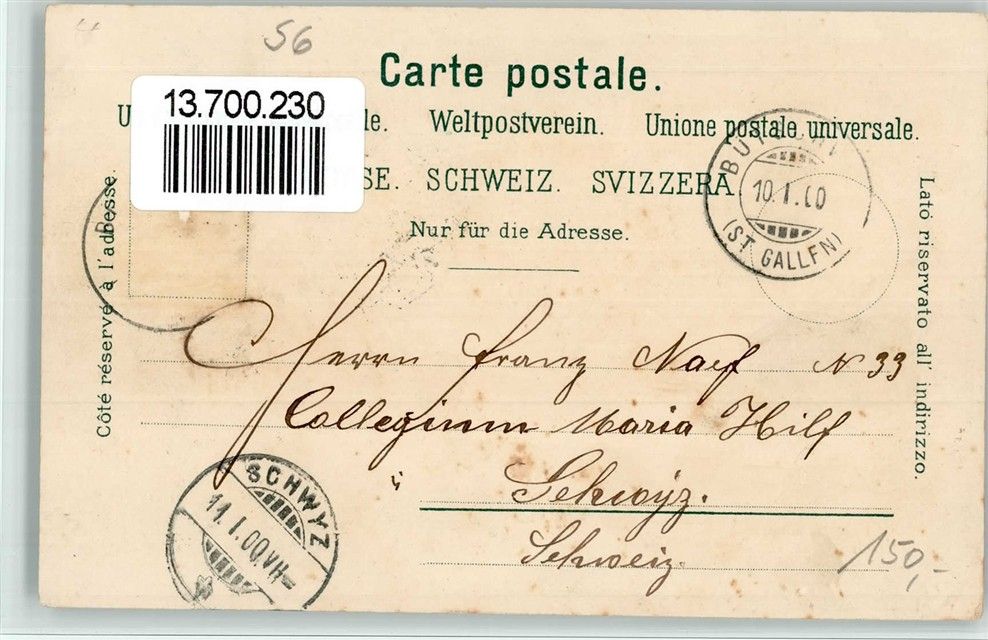 56
Carte postale.
13.700.230
U le. Weltpostverein. Unione postale universale.
SE. SCHWEIZ. SVIZZERA.
Nur für die Adresse.
Côté réservé à l'adresse.
Lato riservato all' indirizzo.
10.I.00
(ST. GALLEN)
Herrn Franz Naef N 33
Collegium Maria Hilf
in
Schwyz.
Schweiz.
SCHWYZ
11.I.00.VII
150,-